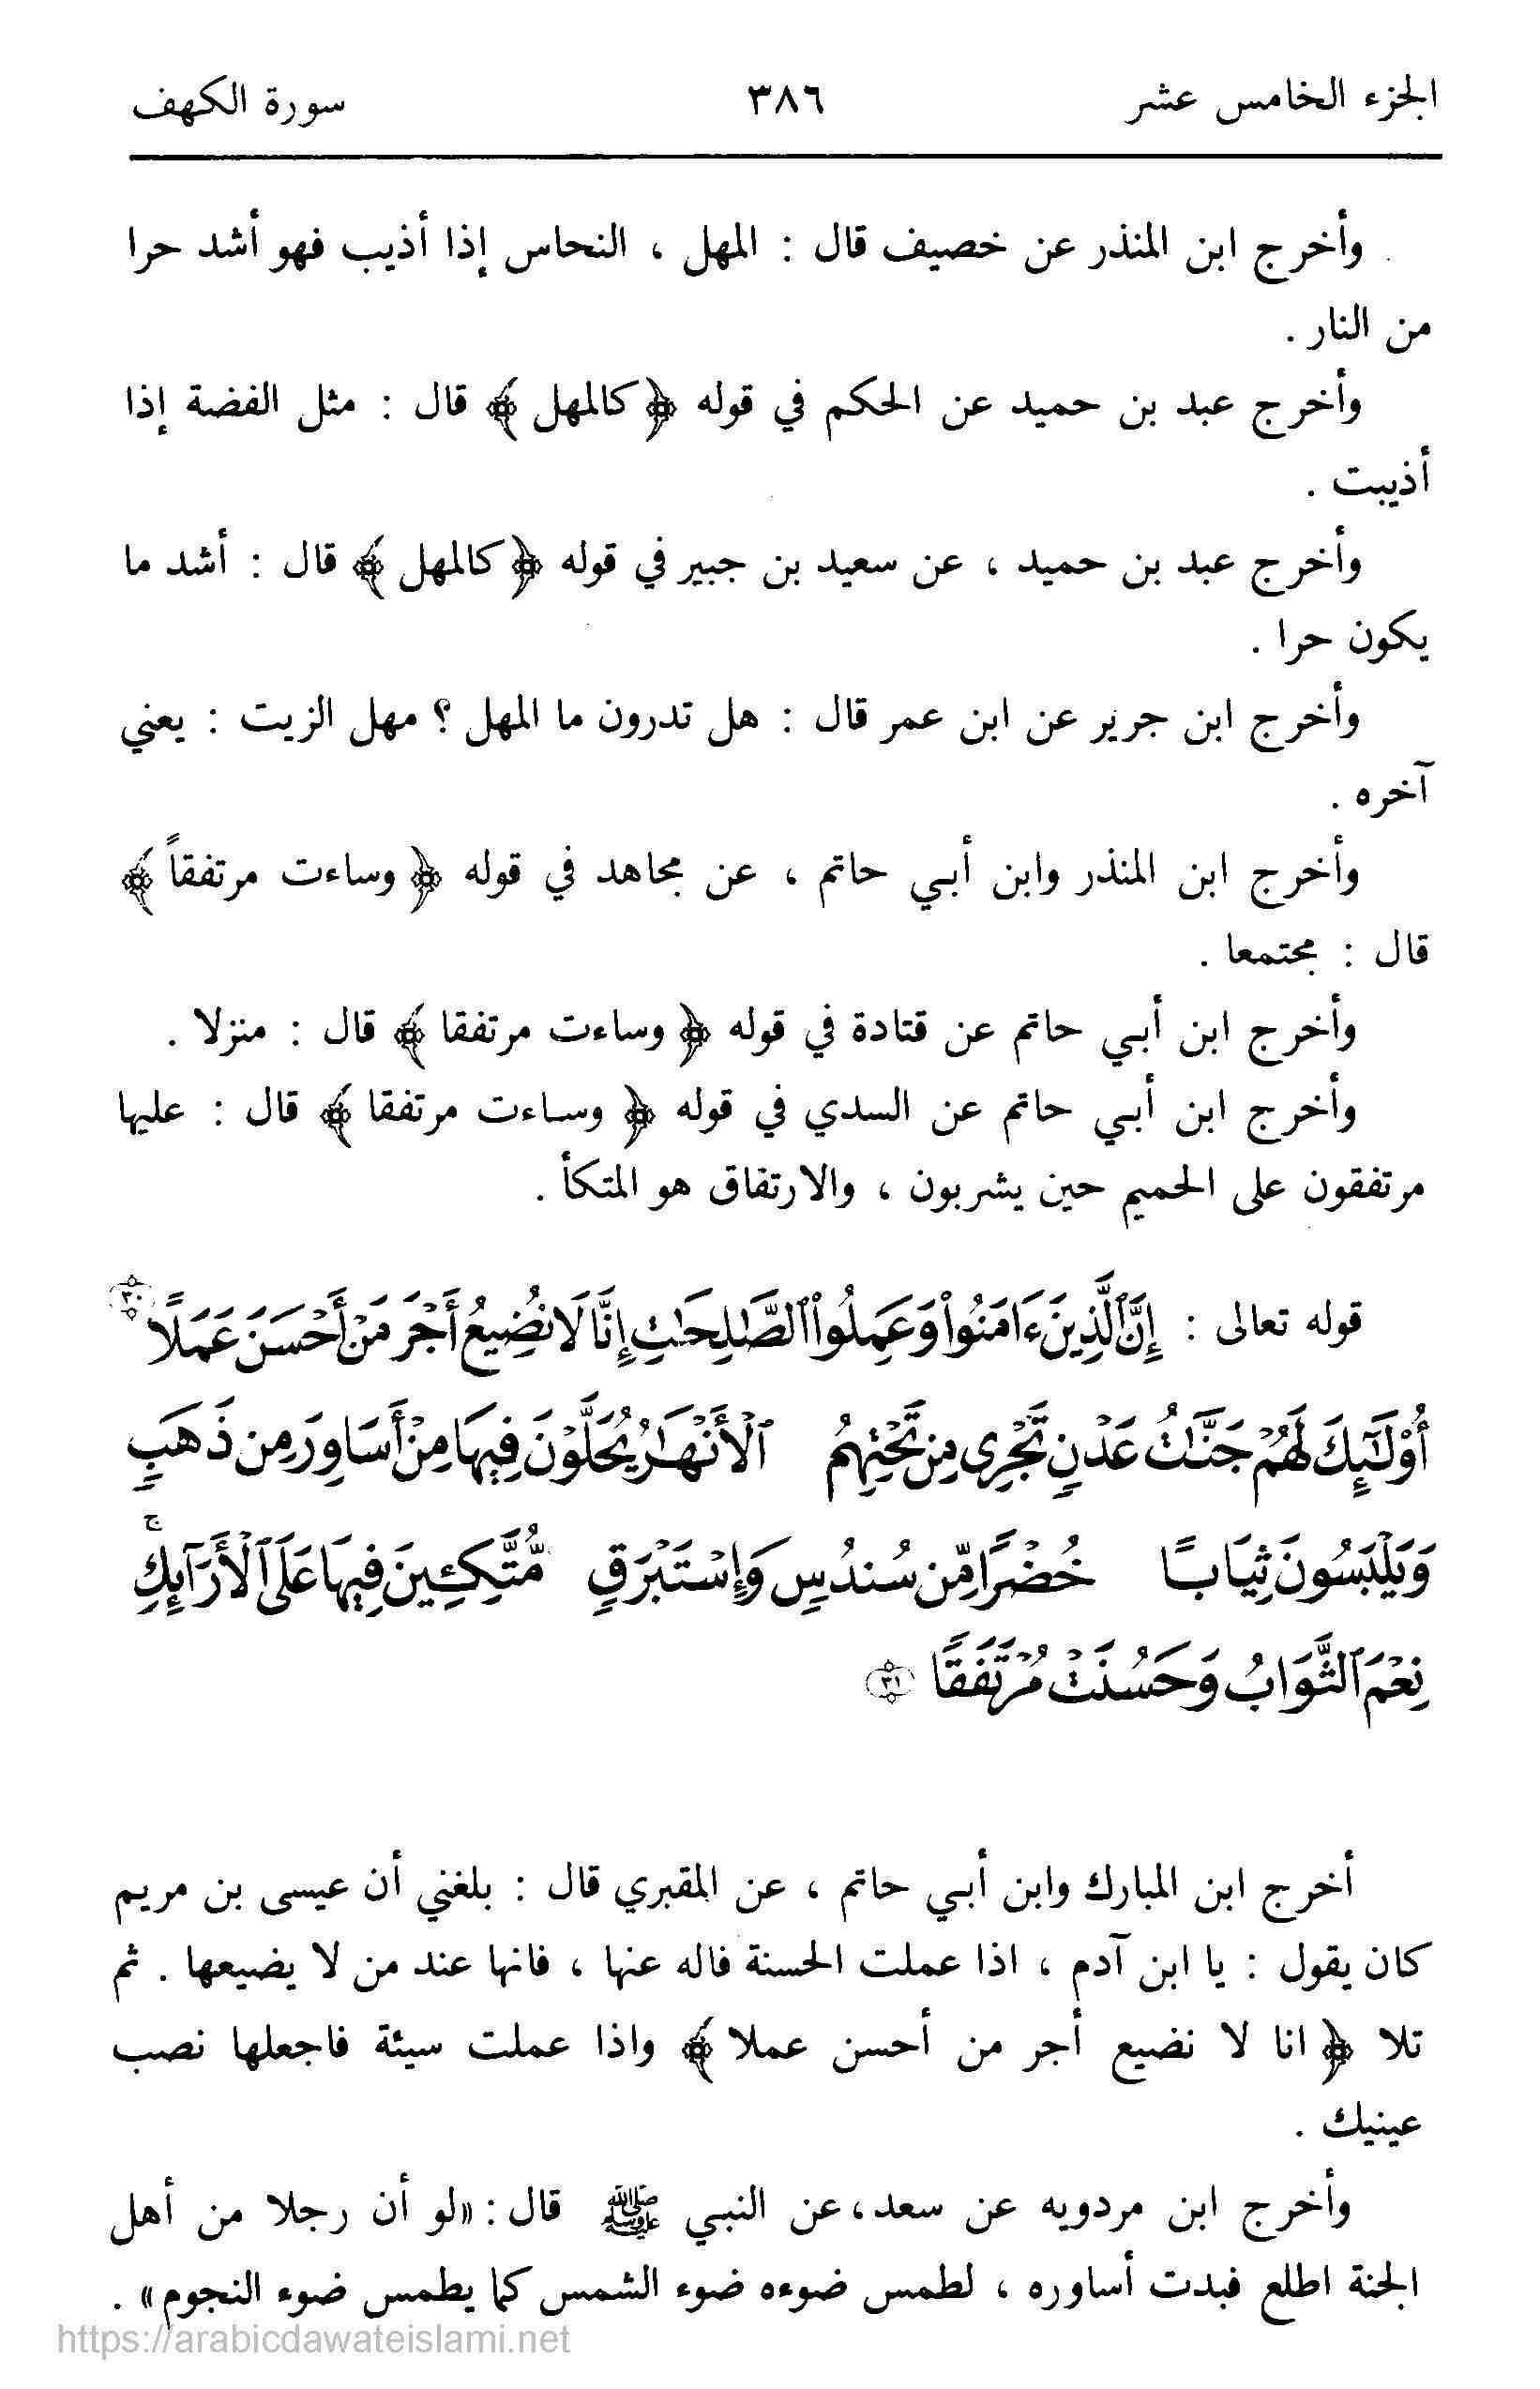 الجزء الخامس عشر ٣٨٦ سورة الكهف
وأخرج ابن المنذر عن خصيف قال : المهل ، النحاس إذا أذيب فهو أشد حرا
من النار .
وأخرج عبد بن حميد عن الحكم في قوله ﴿ كالمهل ﴾ قال : مثل الفضة إذا
أذيبت .
وأخرج عبد بن حميد ، عن سعيد بن جبير في قوله ﴿ كالمهل ﴾ قال : أشد ما
يكون حرا .
وأخرج ابن جرير عن ابن عمر قال : هل تدرون ما المهل ؟ مهل الزيت : يعني
آخره .
وأخرج ابن المنذر وابن أبي حاتم ، عن مجاهد في قوله ﴿ وساءت مرتفقاً ﴾
قال : مجتمعا .
وأخرج ابن أبي حاتم عن قتادة في قوله ﴿ وساءت مرتفقا ﴾ قال : منزلا .
وأخرج ابن أبي حاتم عن السدي في قوله ﴿ وساءت مرتفقا ﴾ قال : عليها
مرتفقون على الحميم حين يشربون ، والارتفاق هو المتكأ .
قوله تعالى : إِنَّ ٱلَّذِينَ ءَامَنُوا۟ وَعَمِلُوا۟ ٱلصَّٰلِحَٰتِ إِنَّا لَا نُضِيعُ أَجْرَ مَنْ أَحْسَنَ عَمَلًا ٣٠
أُو۟لَٰٓئِكَ لَهُمْ جَنَّٰتُ عَدْنٍ تَجْرِى مِن تَحْتِهِمُ ٱلْأَنْهَٰرُ يُحَلَّوْنَ فِيهَا مِنْ أَسَاوِرَ مِن ذَهَبٍ
وَيَلْبَسُونَ ثِيَابًا خُضْرًا مِّن سُندُسٍ وَإِسْتَبْرَقٍ مُّتَّكِـِٔينَ فِيهَا عَلَى ٱلْأَرَآئِكِ ۚ
نِعْمَ ٱلثَّوَابُ وَحَسُنَتْ مُرْتَفَقًا ٣١
أخرج ابن المبارك وابن أبي حاتم ، عن المقبري قال : بلغني أن عيسى بن مريم
كان يقول : يا ابن آدم ، اذا عملت الحسنة فاله عنها ، فانها عند من لا يضيعها . ثم
تلا ﴿ انا لا نضيع أجر من أحسن عملا ﴾ واذا عملت سيئة فاجعلها نصب
عينيك .
وأخرج ابن مردويه عن سعد، عن النبي ﷺ قال : «لو أن رجلا من أهل
الجنة اطلع فبدت أساوره ، لطمس ضوءه ضوء الشمس كما يطمس ضوء النجوم» .
https://arabicdawateislami.net